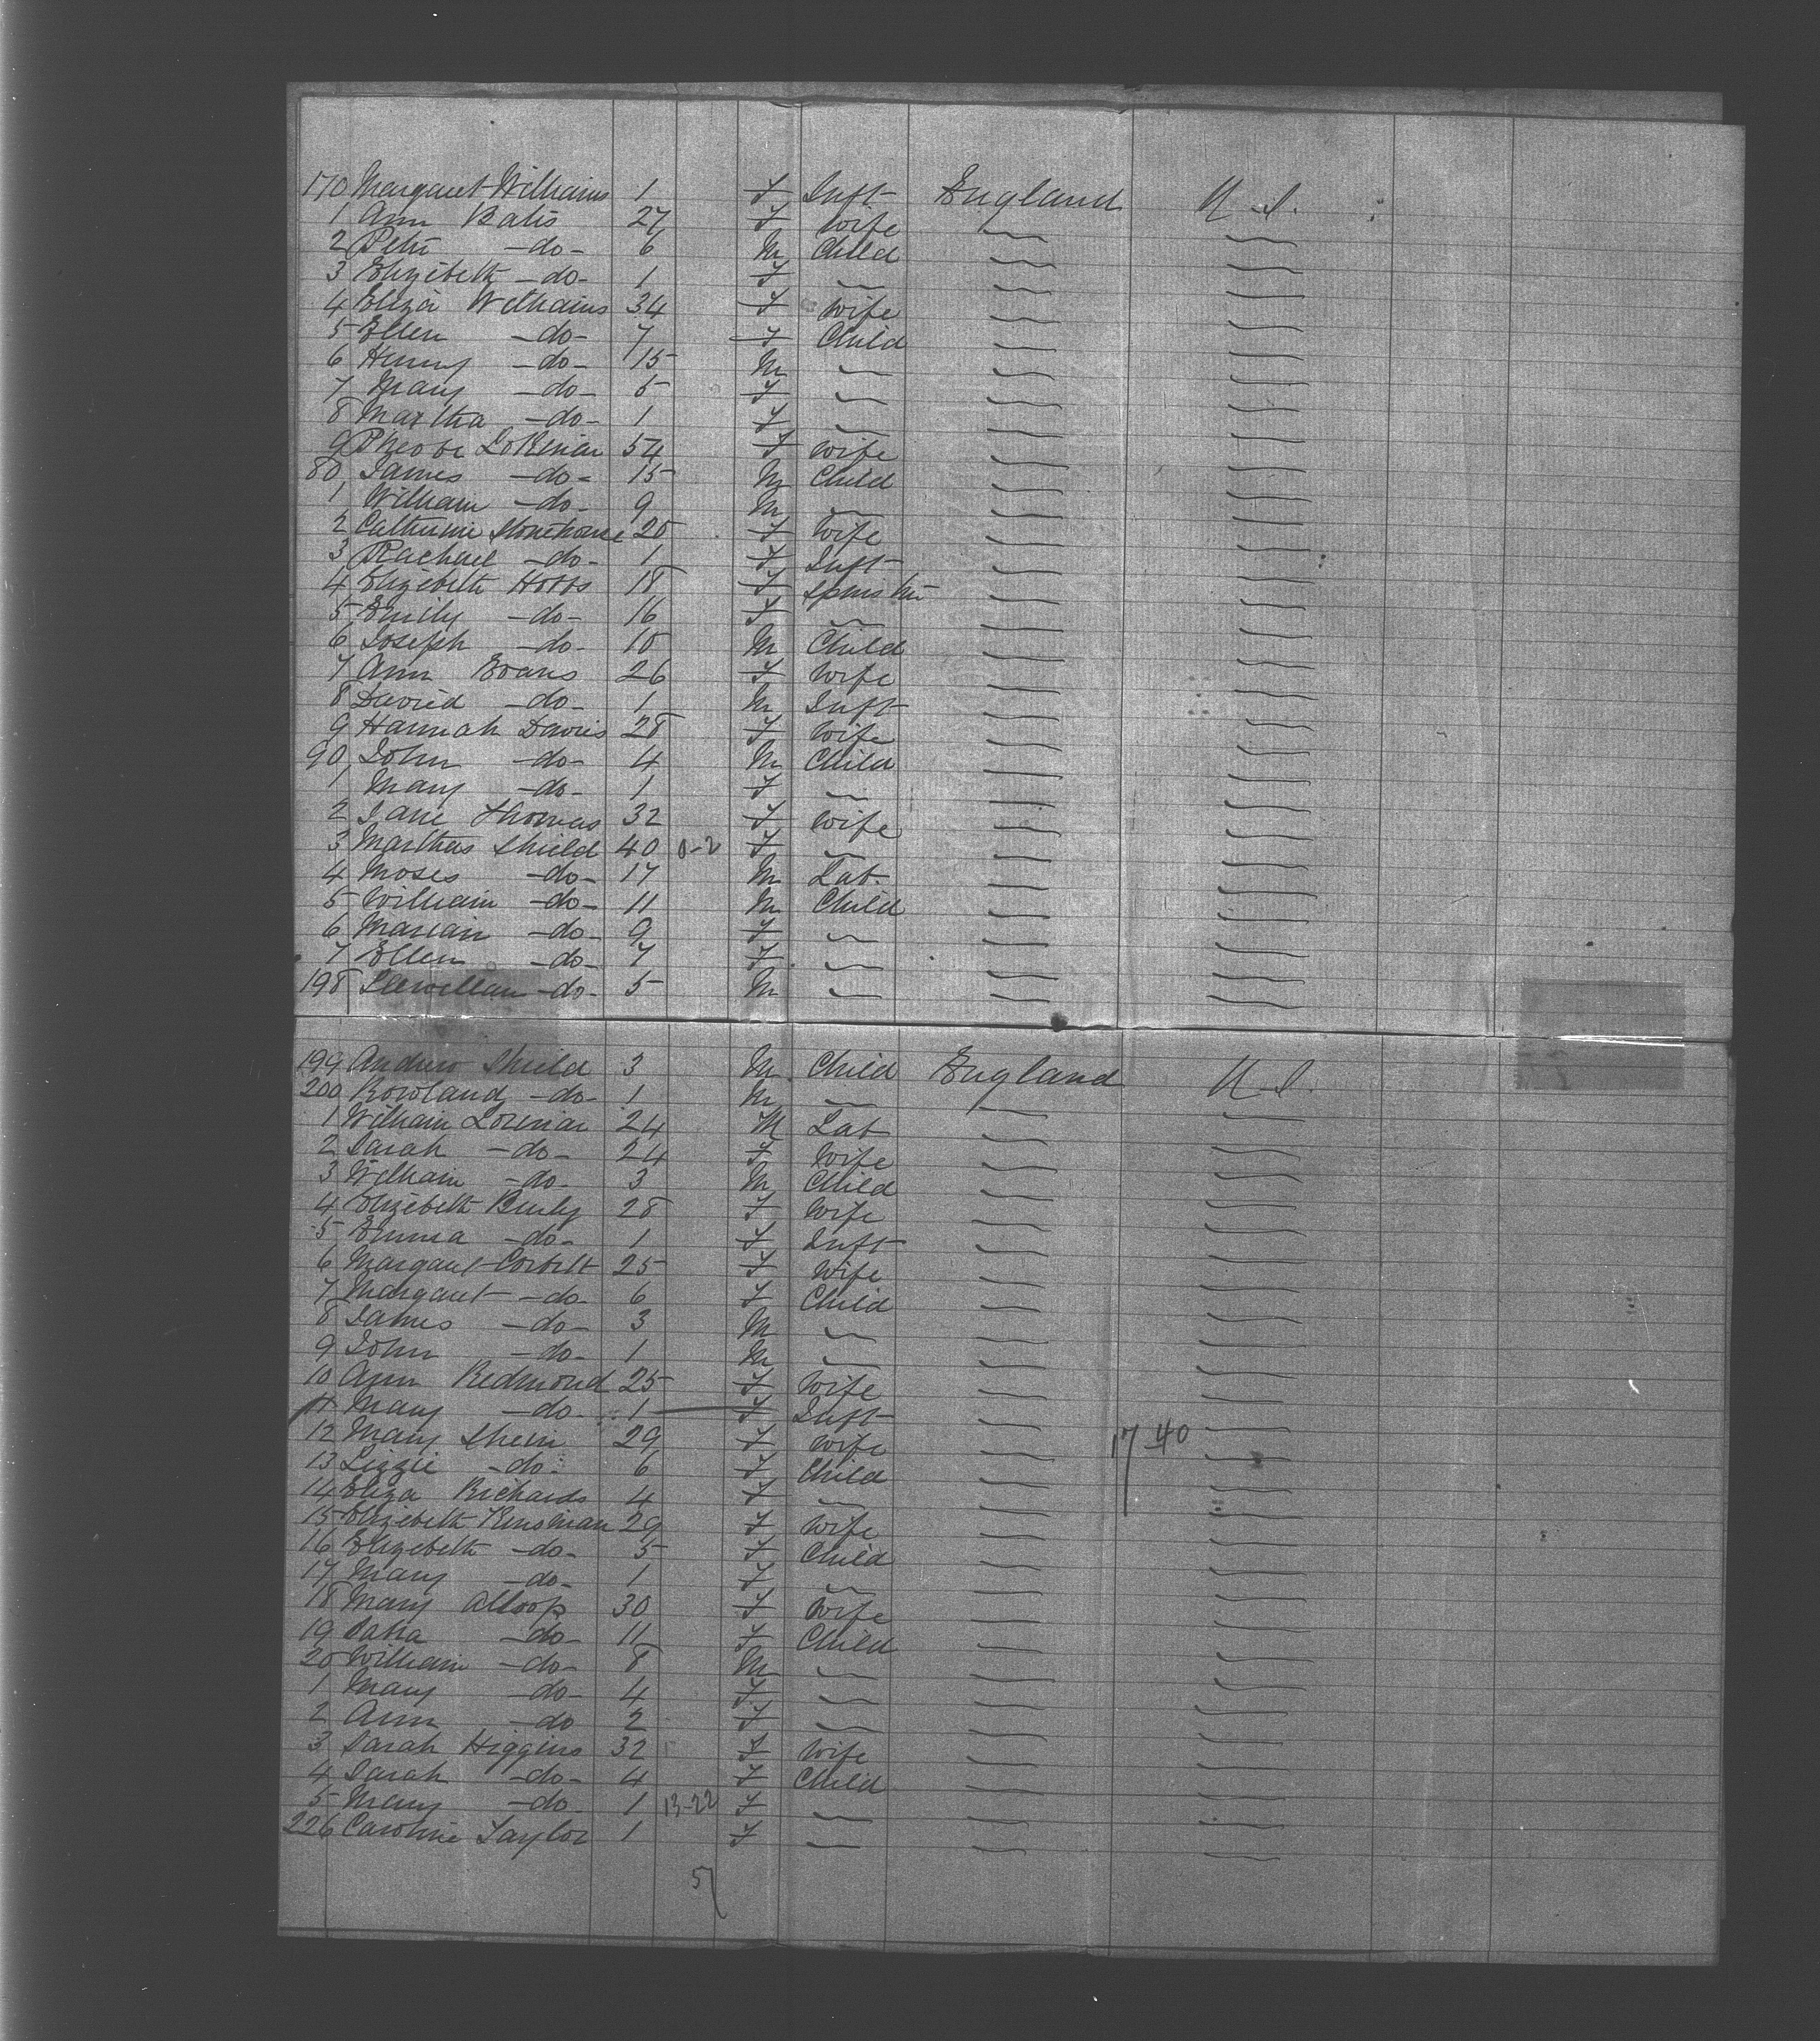 170 Margaret Williams 1 F Inft England U.S.
1 Ann Batis 27 F Wife
2 Petr -do- 6 M Child
3 Elizebeth -do- 1 F
4 Eliza Williams 34 F Wife
5 Ellen -do- 7 F Child
6 Henry -do- 15 M
7 Mary -do- 5 F
8 Martha -do- 1 F
9 Pheobe 54 F Wife
80 James -do- 15 M Child
1 William -do- 9 M
2 Catherine Stonehouse 20 F Wife
3 Rachael -do- 1 F Inft
4 Elizebeth Hobbs 18 F Spinster
5 Emily -do- 16 F
6 Joseph -do- 10 M Child
7 Ann Evans 26 F Wife
8 David -do- 1 M Inft
9 Hannah Davies 28 F Wife
90 John -do- 4 M Child
1 Mary -do- 1 F
2 Jane Thomas 32 F Wife
3 Marthas Shield 40 0-2 F
4 Moses -do- 17 M Lab.
5 William -do- 11 M Child
6 Marian -do- 9 F
7 Ellen -do- 7 F
198 Llewellan -do- 5 M
199 Andrew Shield 3 M Child England U.S.
200 Rowland -do- 1 M
1 William 24 M Lab
2 Sarah -do- 24 F Wife
3 William -do- 3 M Child
4 Elizebeth 28 F Wife
5 Emma -do- 1 F Inft
6 Margaret Corbett 25 F Wife
7 Margaret -do- 6 F Child
8 James -do- 3 M
9 John -do- 1 M
10 Ann Redmond 25 F Wife
11 Mary -do- 1 F Inft
12 Mary 29 F Wife 17 40
13 Lizzie -do- 6 F Child
14 Eliza Richards 4 F
15 Elizebeth Kinsman 29 F Wife
16 Elizebeth -do- 5 F Child
17 Mary -do- 1 F
18 Mary Allsop 30 F Wife
19 -do- 11 F Child
20 William -do- 8 M
1 Mary -do- 4 F
2 Ann -do 2 F
3 Sarah Higgins 32 F Wife
4 Sarah -do- 4 F Child
5 Mary -do- 1 13-22 F
226 Caroline Taylor 1 F
57